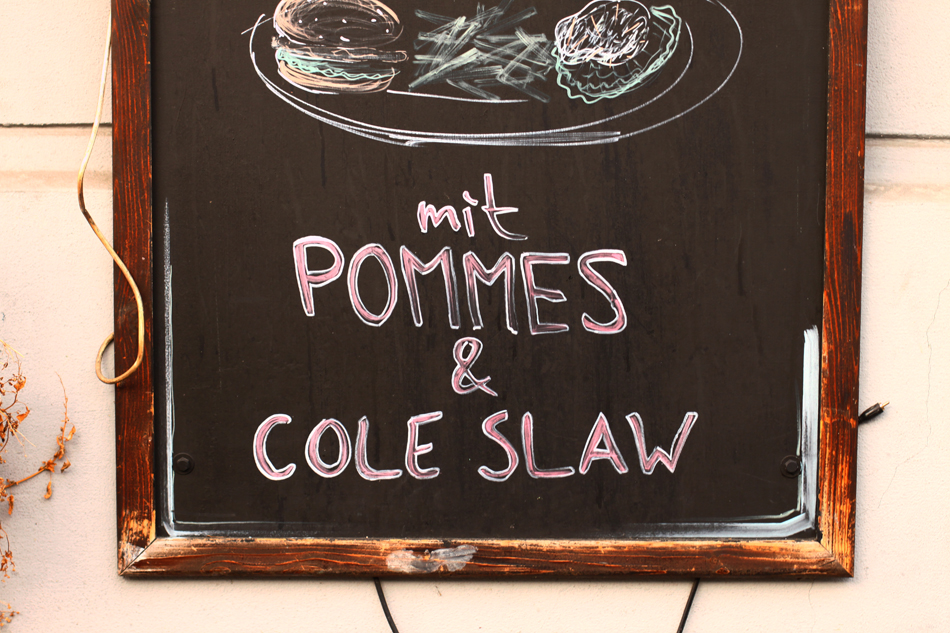 mit
POMMES
&
COLE SLAW